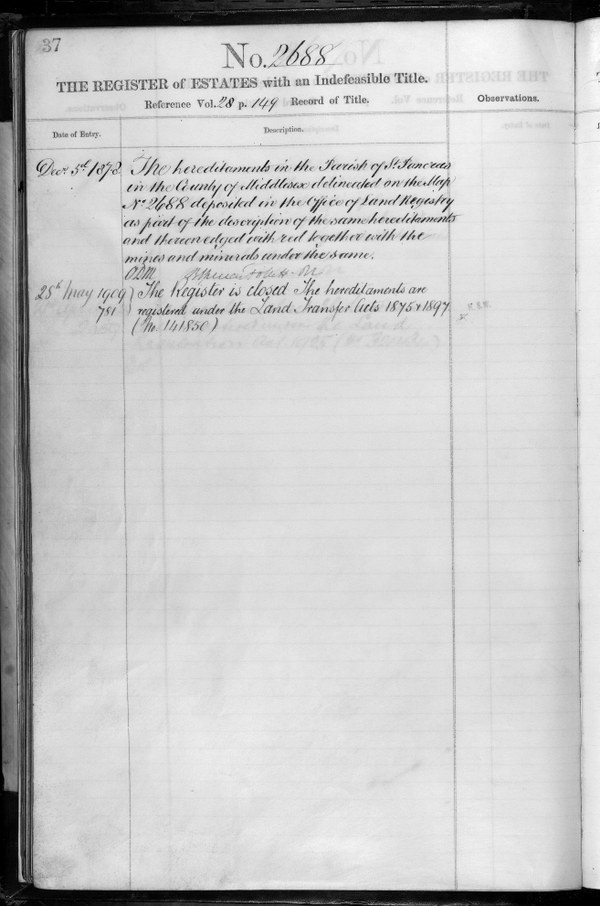 37
No. 2688
THE REGISTER of ESTATES with an Indefeasible Title.
Reference Vol. 28 p. 149 Record of Title.
Observations.
Date of Entry.
Description.
Decr. 5th 1873. The hereditaments in the Parish of St. Pancras
in the County of Middlesex delineated on the Map
No. 2688 deposited in the Office of Land Registry
as part of the description of the same hereditaments
and thereon edged with red together with the
mines and minerals under the same.
28th May 1909 } The Register is closed The hereditaments are
781 registered under the Land Transfer Acts 1875 & 1897
(No. 141850)